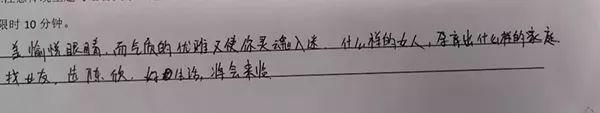 限时 10 分钟。
美愉悦眼睛,而气质的优雅又使你灵魂入迷.什么样的女人,孕育出什么样的家庭.
找女友、选陈欣,好的生活,将会来临